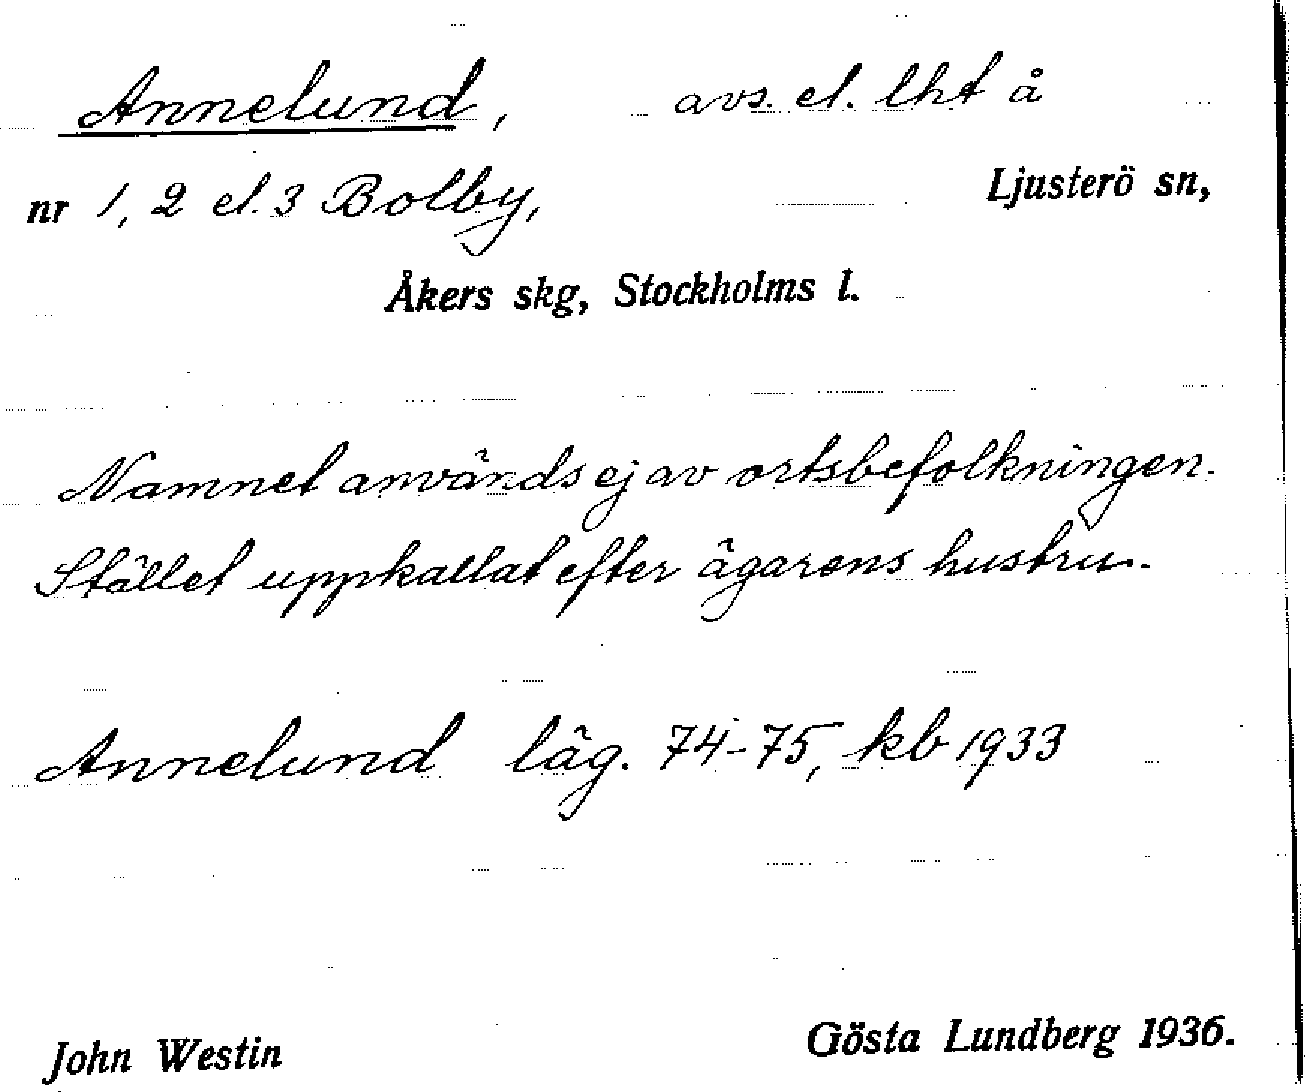 Annelund, avs. el. lht å
nr 1, 2 el. 3 Bolby, Ljusterö sn,
Åkers skg, Stockholms l.
Namnet används ej av ortsbefolkningen.
Stället uppkallat efter ägarens hustru.
Annelund läg. 74-75, kb 1933
John Westin Gösta Lundberg 1936.